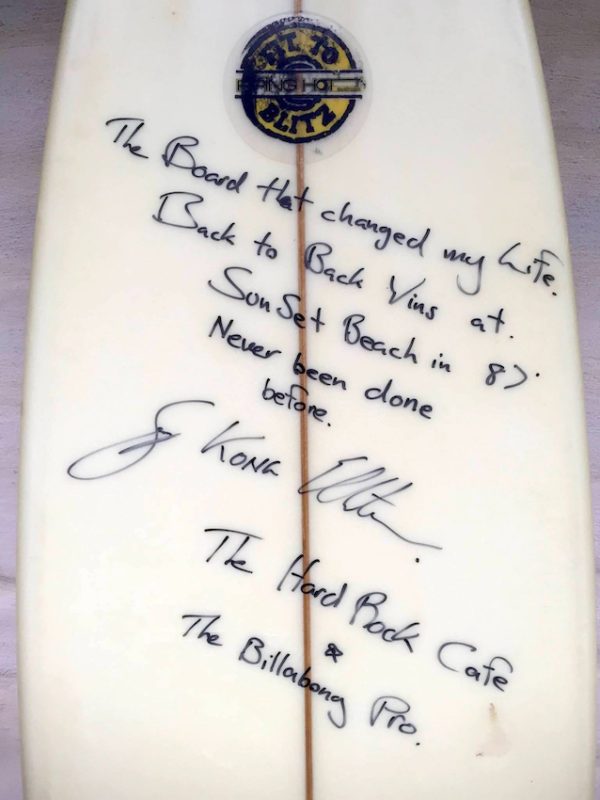 TO
PIPING HOT
BLITZ
The Board that changed my Life.
Back to Back Wins at.
SunSet Beach in 87.
Never been done
before.
KONG
The Hard Rock Cafe
&
The Billabong Pro.